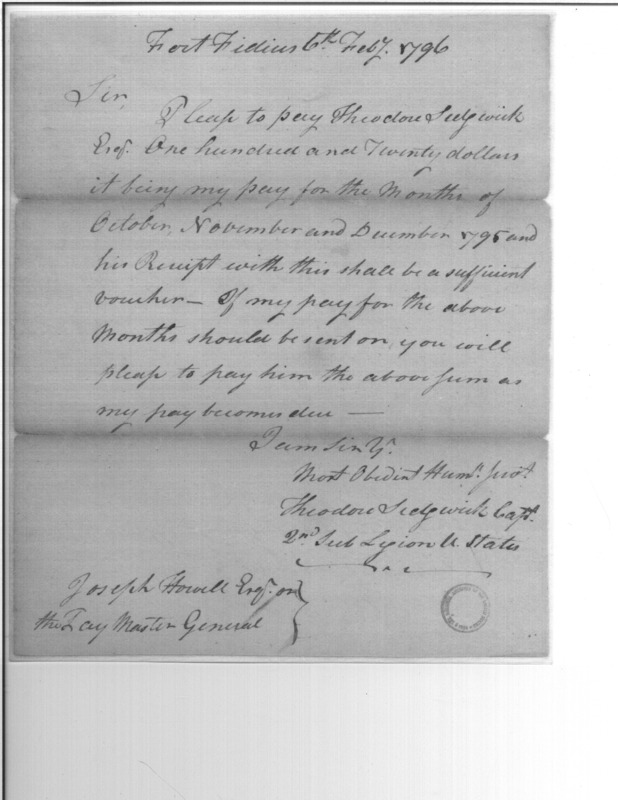 Fort Fidius 6th Feby. 1796
Sir,
Please to pay Theodore Sedgwick
Esqr. One hundred and Twenty dollars
it being my pay for the Months of
October, November and December 1795 and
his Receipt with this shall be a sufficient
voucher — If my pay for the above
Months should be sent on, you will
please to pay him the above sum as
my pay becomes due —
I am Sir Yr.
Most Obedient Humr. Servt.
Theodore Sedgwick Capt.
2nd Sub Legion U. States
Joseph Howell Esqr. or
the Pay Master General